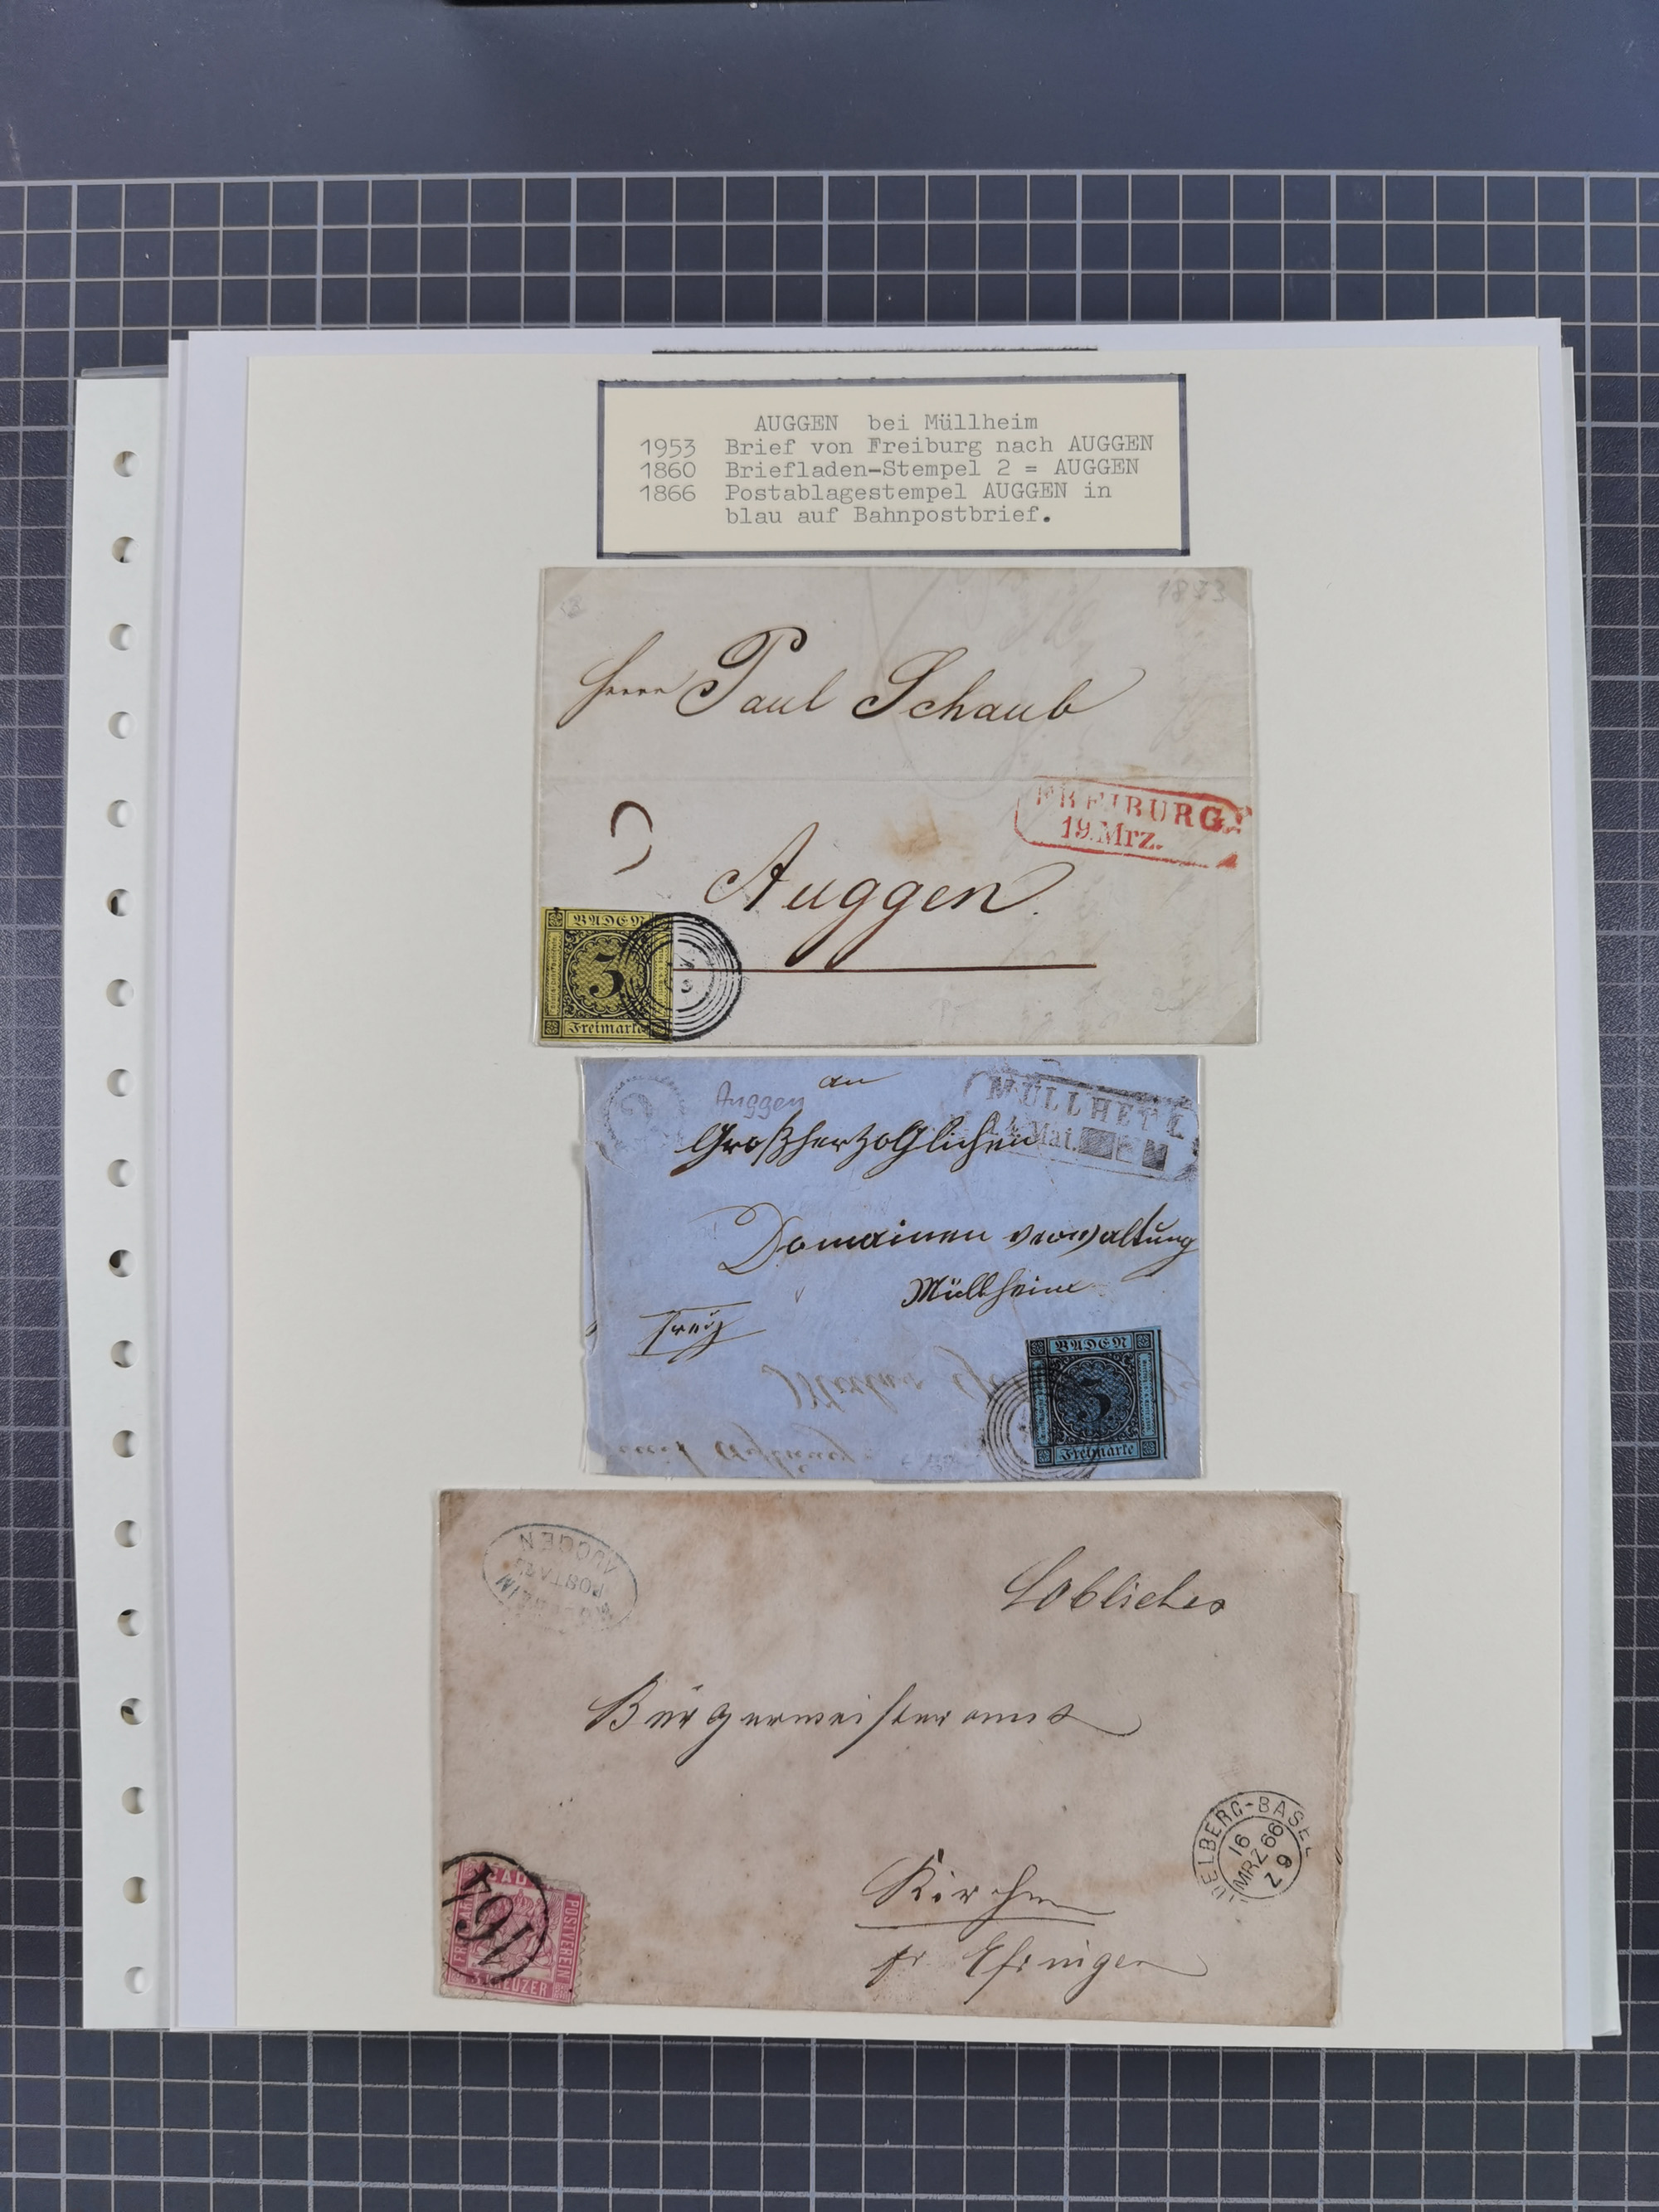 AUGGEN bei Müllheim
1953 Brief von Freiburg nach AUGGEN
1860 Briefladen-Stempel 2 = AUGGEN
1866 Postablagestempel AUGGEN in
blau auf Bahnpostbrief.
Herrn Paul Schaub
FREIBURG
19.Mrz.
Auggen.
BADEN
3
Freimarke
Auggen
an
MÜLLHEI
Mai.
2
Großherzoglichen
Domainen verwaltung
Müllheim
BADEN
3
Freimarke
AUGGEN
POSTABL
Löbliches
Bürgermeisteramt
DELBERG-BASEL
16
MRZ 66
Z 9
Kirchen
pr Efringen
164
BADEN
POSTVEREIN
3 KREUZER